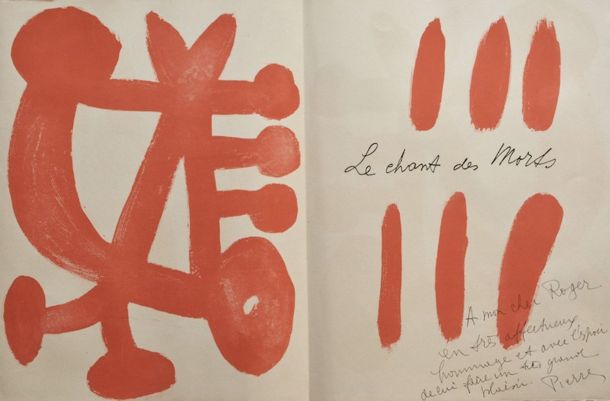 Le chant des Morts
A mon cher Roger
en très affectueux
hommage et avec l'espoir
de lui faire un très grand
plaisir. Pierre